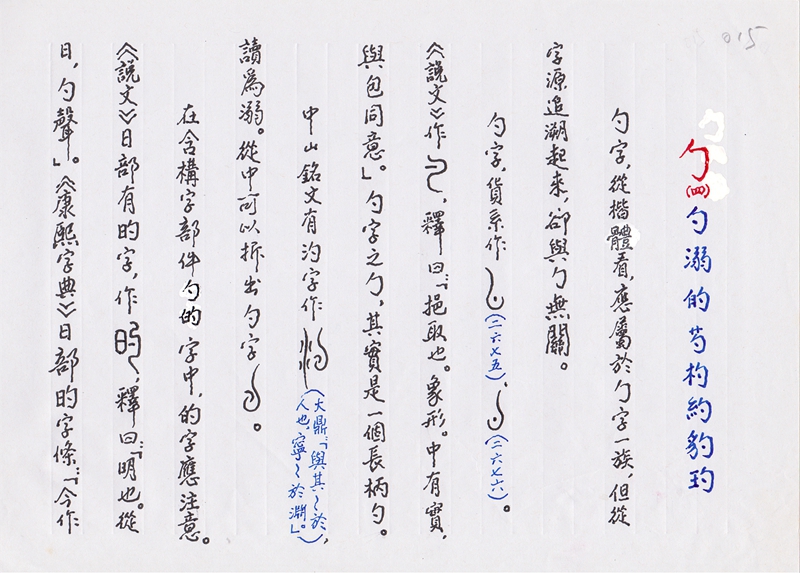 015
勹(四)勺溺的芍杓約豹玓
勺字，從楷體看，應屬於勹字一族，但從
字源追溯起來，卻與勹無關。
勺字，貨系作(二六七五)、(二六七六)。
《說文》作，釋曰：「挹取也。象形。中有實，
與包同意。」勺字之勹，其實是一個長柄勺。
中山銘文有汋字作(大鼎：「與其〻於人也，寧〻於淵。」)，
讀為溺。從中可以拆出勺字。
在含構字部件勺的字中，的字應注意。
《說文》日部有旳字，作，釋曰：「明也。從
日，勺聲」。《康熙字典》日部旳字條：「今作